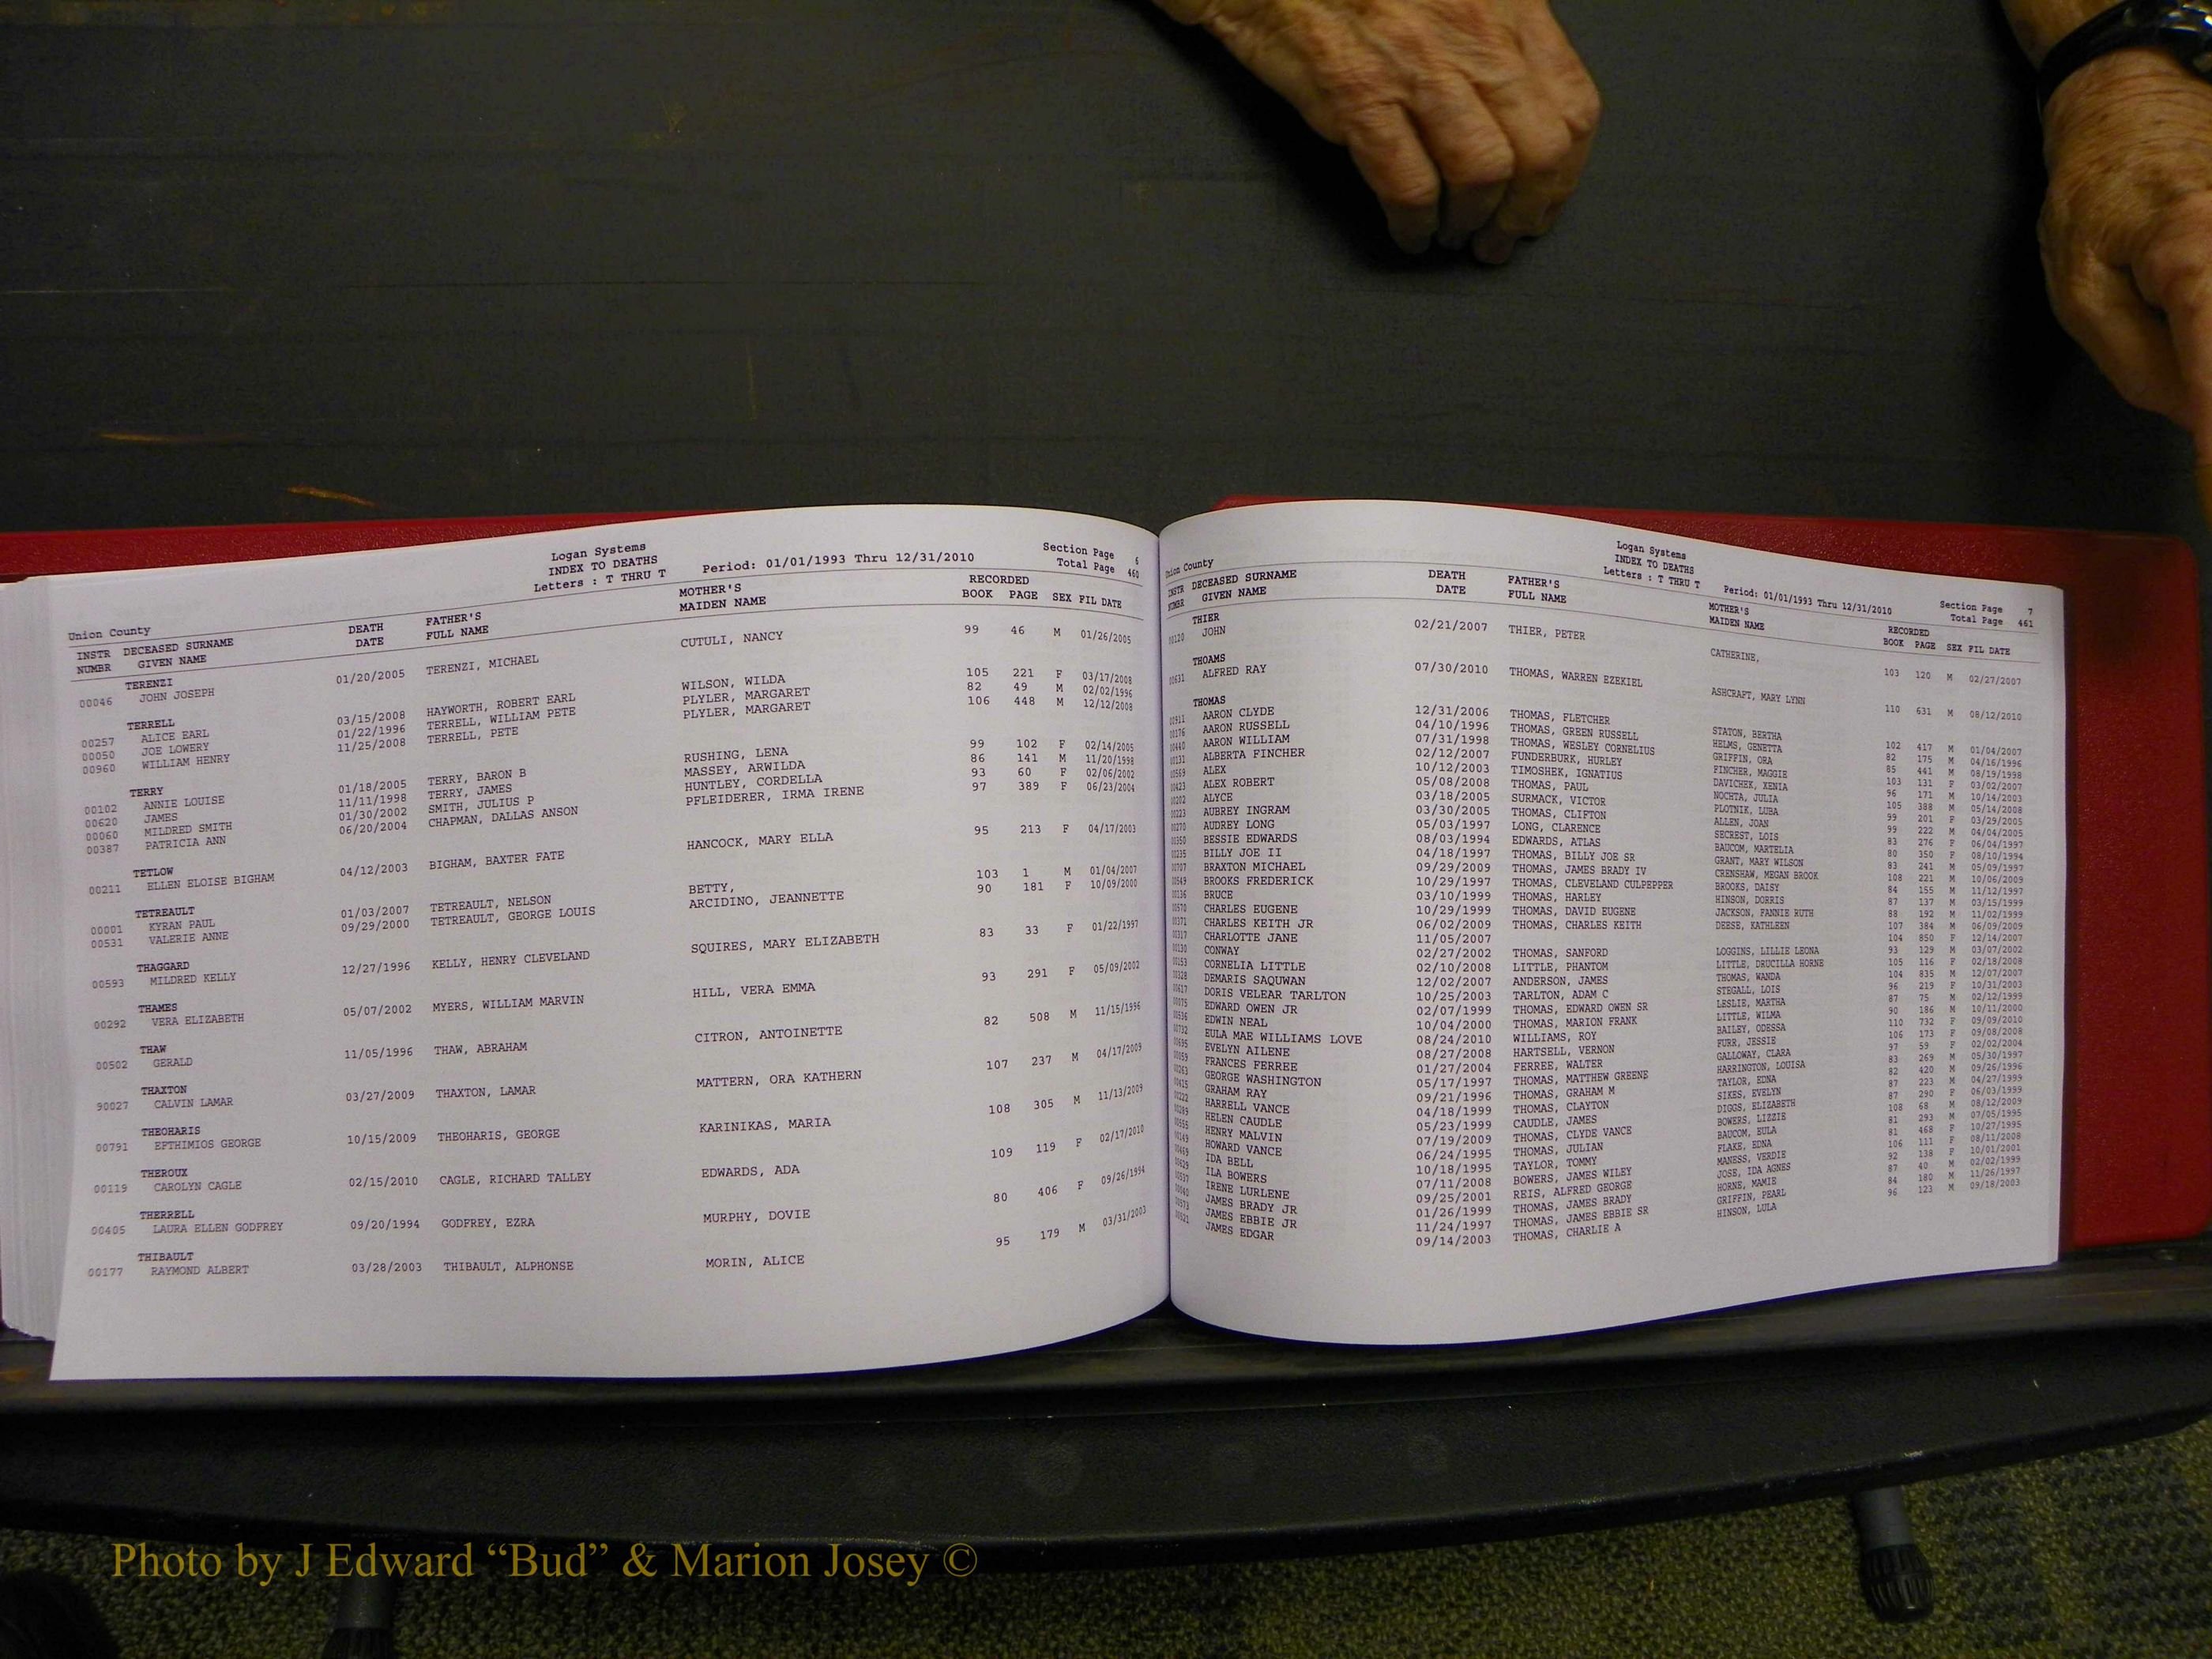 Union County
Logan Systems
INDEX TO DEATHS
Letters : T THRU T
Period: 01/01/1993 Thru 12/31/2010
Section Page 6
Total Page 460
INSTR NUMBR DECEASED SURNAME GIVEN NAME DEATH DATE FATHER'S FULL NAME MOTHER'S MAIDEN NAME RECORDED BOOK PAGE SEX FIL DATE
TERENZI
00046 JOHN JOSEPH 01/20/2005 TERENZI, MICHAEL CUTULI, NANCY 99 46 M 01/26/2005
TERRELL
00257 ALICE EARL 03/15/2008 HAYWORTH, ROBERT EARL WILSON, WILDA 105 221 F 03/17/2008
00050 JOE LOWERY 01/22/1996 TERRELL, WILLIAM PETE PLYLER, MARGARET 82 49 M 02/02/1996
00960 WILLIAM HENRY 11/25/2008 TERRELL, PETE PLYLER, MARGARET 106 448 M 12/12/2008
TERRY
00102 ANNIE LOUISE 01/18/2005 TERRY, BARON B RUSHING, LENA 99 102 F 02/14/2005
00620 JAMES 11/11/1998 TERRY, JAMES MASSEY, ARWILDA 86 141 M 11/20/1998
00060 MILDRED SMITH 01/30/2002 SMITH, JULIUS P HUNTLEY, CORDELLA 93 60 F 02/06/2002
00387 PATRICIA ANN 06/20/2004 CHAPMAN, DALLAS ANSON PFLEIDERER, IRMA IRENE 97 389 F 06/23/2004
TETLOW
00211 ELLEN ELOISE BIGHAM 04/12/2003 BIGHAM, BAXTER FATE HANCOCK, MARY ELLA 95 213 F 04/17/2003
TETREAULT
00001 KYRAN PAUL 01/03/2007 TETREAULT, NELSON BETTY, 103 1 M 01/04/2007
00531 VALERIE ANNE 09/29/2000 TETREAULT, GEORGE LOUIS ARCIDINO, JEANNETTE 90 181 F 10/09/2000
THAGGARD
00593 MILDRED KELLY 12/27/1996 KELLY, HENRY CLEVELAND SQUIRES, MARY ELIZABETH 83 33 F 01/22/1997
THAMES
00292 VERA ELIZABETH 05/07/2002 MYERS, WILLIAM MARVIN HILL, VERA EMMA 93 291 F 05/09/2002
THAW
00502 GERALD 11/05/1996 THAW, ABRAHAM CITRON, ANTOINETTE 82 508 M 11/15/1996
THAXTON
90027 CALVIN LAMAR 03/27/2009 THAXTON, LAMAR MATTERN, ORA KATHERN 107 237 M 04/17/2009
THEOHARIS
00791 EFTHIMIOS GEORGE 10/15/2009 THEOHARIS, GEORGE KARINIKAS, MARIA 108 305 M 11/13/2009
THEROUX
00119 CAROLYN CAGLE 02/15/2010 CAGLE, RICHARD TALLEY EDWARDS, ADA 109 119 F 02/17/2010
THERRELL
00405 LAURA ELLEN GODFREY 09/20/1994 GODFREY, EZRA MURPHY, DOVIE 80 406 F 09/26/1994
THIBAULT
00177 RAYMOND ALBERT 03/28/2003 THIBAULT, ALPHONSE MORIN, ALICE 95 179 M 03/31/2003
Union County
Logan Systems
INDEX TO DEATHS
Letters : T THRU T
Period: 01/01/1993 Thru 12/31/2010
Section Page 7
Total Page 461
INSTR NUMBR DECEASED SURNAME GIVEN NAME DEATH DATE FATHER'S FULL NAME MOTHER'S MAIDEN NAME RECORDED BOOK PAGE SEX FIL DATE
THIER
00120 JOHN 02/21/2007 THIER, PETER CATHERINE, 103 120 M 02/27/2007
THOAMS
00631 ALFRED RAY 07/30/2010 THOMAS, WARREN EZEKIEL ASHCRAFT, MARY LYNN 110 631 M 08/12/2010
THOMAS
AARON CLYDE 12/31/2006 THOMAS, FLETCHER STATON, BERTHA 102 417 M 01/04/2007
AARON RUSSELL 04/10/1996 THOMAS, GREEN RUSSELL HELMS, GENETTA 82 175 M 04/16/1996
AARON WILLIAM 07/31/1998 THOMAS, WESLEY CORNELIUS GRIFFIN, ORA 85 441 M 08/19/1998
ALBERTA FINCHER 02/12/2007 FUNDERBURK, HURLEY FINCHER, MAGGIE 103 131 F 03/02/2007
ALEX 10/12/2003 TIMOSHEK, IGNATIUS DAVICHEK, XENIA 96 171 M 10/14/2003
ALEX ROBERT 05/08/2008 THOMAS, PAUL NOCHTA, JULIA 105 388 M 05/14/2008
ALYCE 03/18/2005 SURMACK, VICTOR PLOTNIK, LUBA 99 201 F 03/29/2005
AUBREY INGRAM 03/30/2005 THOMAS, CLIFTON ALLEN, JOAN 99 222 M 04/04/2005
AUDREY LONG 05/03/1997 LONG, CLARENCE SECREST, LOIS 83 276 F 06/04/1997
BESSIE EDWARDS 08/03/1994 EDWARDS, ATLAS BAUCOM, MARTELIA 80 350 F 08/10/1994
BILLY JOE II 04/18/1997 THOMAS, BILLY JOE SR GRANT, MARY WILSON 83 241 M 05/09/1997
BRAXTON MICHAEL 09/29/2009 THOMAS, JAMES BRADY IV CRENSHAW, MEGAN BROOK 108 221 M 10/06/2009
BROOKS FREDERICK 10/29/1997 THOMAS, CLEVELAND CULPEPPER BROOKS, DAISY 84 155 M 11/12/1997
BRUCE 03/10/1999 THOMAS, HARLEY HINSON, DORRIS 87 137 M 03/15/1999
CHARLES EUGENE 10/29/1999 THOMAS, DAVID EUGENE JACKSON, FANNIE RUTH 88 192 M 11/02/1999
CHARLES KEITH JR 06/02/2009 THOMAS, CHARLES KEITH DEESE, KATHLEEN 107 384 M 06/09/2009
CHARLOTTE JANE 11/05/2007 104 850 F 12/14/2007
CONWAY 02/27/2002 THOMAS, SANFORD LOGGINS, LILLIE LEONA 93 129 M 03/07/2002
CORNELIA LITTLE 02/10/2008 LITTLE, PHANTOM LITTLE, DRUCILLA HORNE 105 116 F 02/18/2008
DEMARIS SAQUWAN 12/02/2007 ANDERSON, JAMES THOMAS, WANDA 104 835 M 12/07/2007
DORIS VELEAR TARLTON 10/25/2003 TARLTON, ADAM C STEGALL, LOIS 96 219 F 10/31/2003
EDWARD OWEN JR 02/07/1999 THOMAS, EDWARD OWEN SR LESLIE, MARTHA 87 75 M 02/12/1999
EDWIN NEAL 10/04/2000 THOMAS, MARION FRANK LITTLE, WILMA 90 186 M 10/11/2000
EULA MAE WILLIAMS LOVE 08/24/2010 WILLIAMS, ROY BAILEY, ODESSA 110 732 F 09/09/2010
EVELYN AILENE 08/27/2008 HARTSELL, VERNON FURR, JESSIE 106 173 F 09/08/2008
FRANCES FERREE 01/27/2004 FERREE, WALTER GALLOWAY, CLARA 97 59 F 02/02/2004
GEORGE WASHINGTON 05/17/1997 THOMAS, MATTHEW GREENE HARRINGTON, LOUISA 83 269 M 05/30/1997
GRAHAM RAY 09/21/1996 THOMAS, GRAHAM M TAYLOR, EDNA 82 420 M 09/26/1996
HARRELL VANCE 04/18/1999 THOMAS, CLAYTON SIKES, EVELYN 87 223 M 04/27/1999
HELEN CAUDLE 05/23/1999 CAUDLE, JAMES DIGGS, ELIZABETH 87 290 F 06/03/1999
HENRY MALVIN 07/19/2009 THOMAS, CLYDE VANCE BOWERS, LIZZIE 108 68 M 08/12/2009
HOWARD VANCE 06/24/1995 THOMAS, JULIAN BAUCOM, EULA 81 293 M 07/05/1995
IDA BELL 10/18/1995 TAYLOR, TOMMY FLAKE, EDNA 81 468 F 10/27/1995
ILA BOWERS 07/11/2008 BOWERS, JAMES WILEY MANESS, VERDIE 106 111 F 08/11/2008
IRENE LURLENE 09/25/2001 REIS, ALFRED GEORGE JOSE, IDA AGNES 92 138 F 10/01/2001
JAMES BRADY JR 01/26/1999 THOMAS, JAMES BRADY HORNE, MAMIE 87 40 M 02/02/1999
JAMES EBBIE JR 11/24/1997 THOMAS, JAMES EBBIE SR GRIFFIN, PEARL 84 180 M 11/26/1997
JAMES EDGAR 09/14/2003 THOMAS, CHARLIE A HINSON, LULA 96 123 M 09/18/2003
Photo by J Edward “Bud” & Marion Josey ©